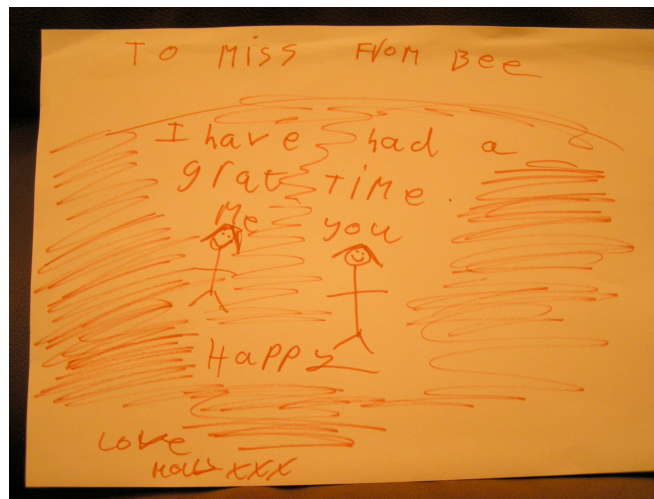 To Miss From Bee
I have had a
grat Time.
Me you
Happy
Love
xxx